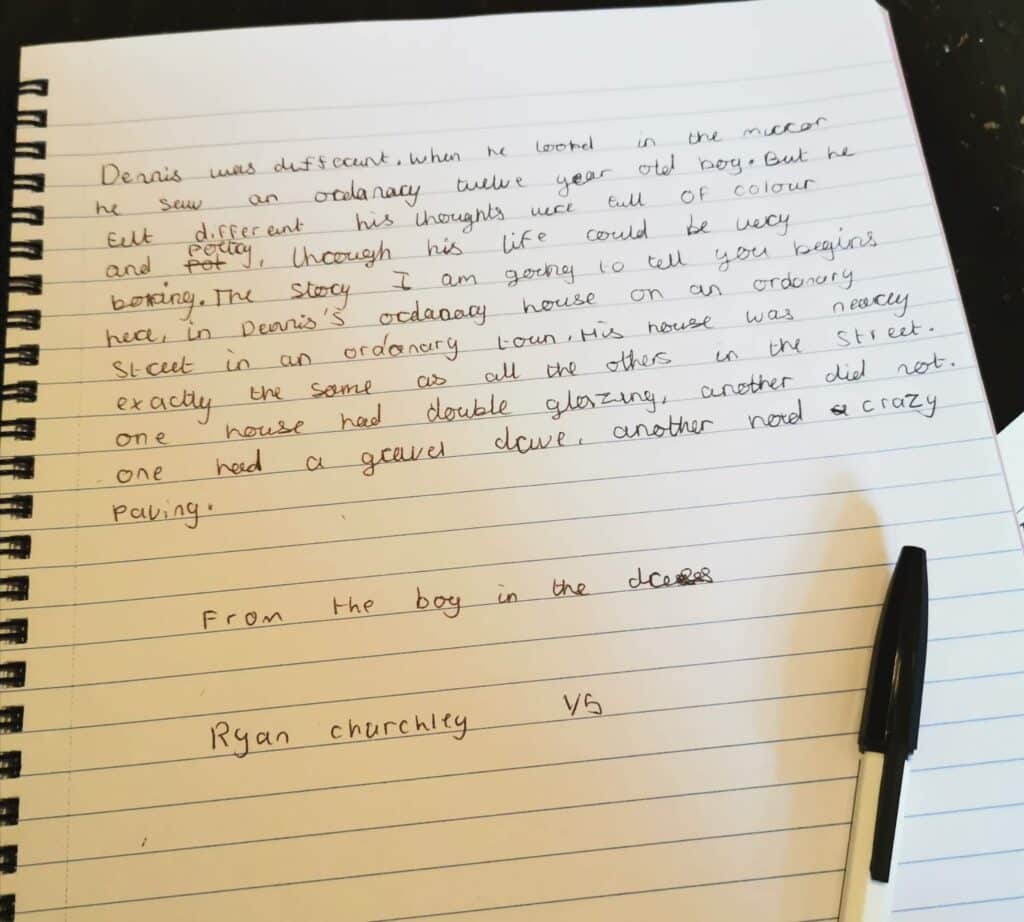 Dennis was different. When he lookd in the mirror
he saw an ordanary twelve year old boy. But he
felt different his thoughts were full of colour
and pot poitry, through his life could be very
boring. The story I am going to tell you begins
here, in Dennis's ordanary house on an ordonary
Street in an ordonary town. His house was nearley
exactly the same as all the others in the street.
one house had double glazing, another did not.
one had a gravel drive, another had a crazy
paving.
From the boy in the dress
Ryan churchley Y5